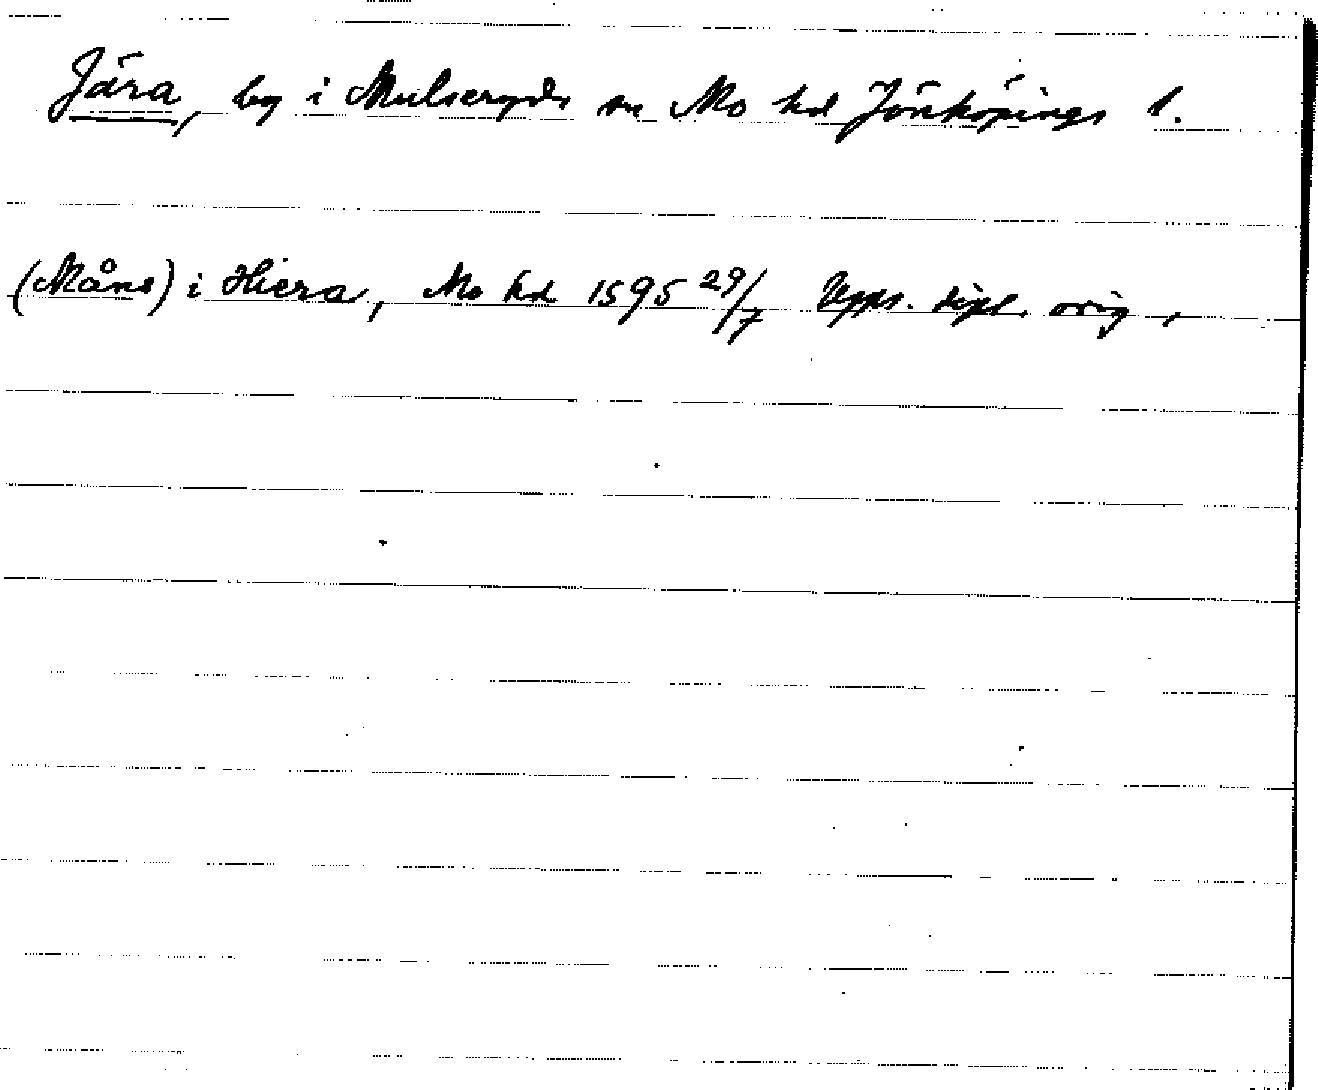 Jära, by i Mulseryds sn Mo hd Jönköpings l.
(Måns) i Hiera, Mo hd 1595 29/7 Upps. dipl. orig,